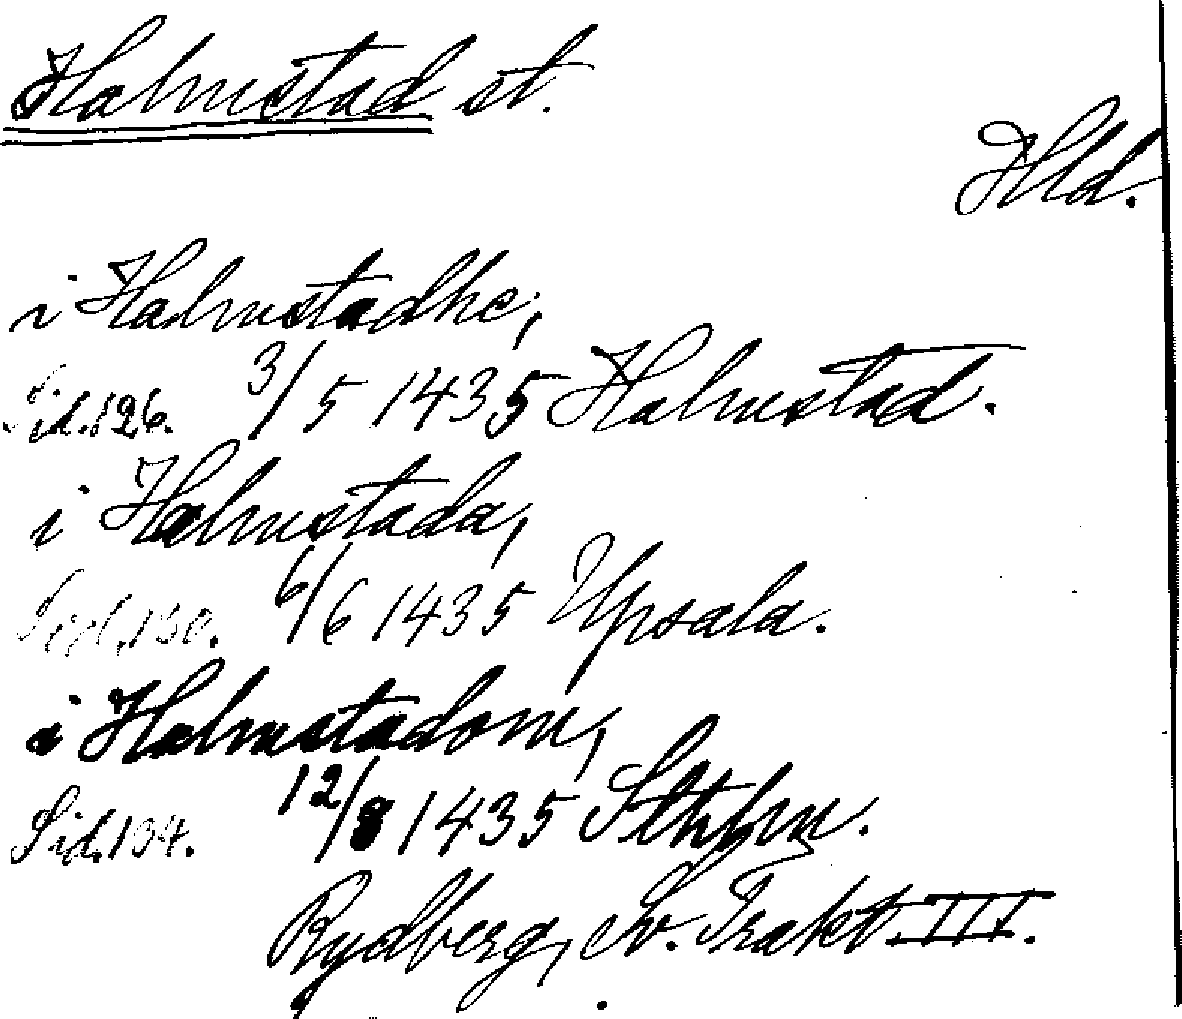 Halmstad st.
Hld.
i Halmstadhe,
Sid. 126. 3/5 1435 Halmstad.
i Halmstada,
Sid. 130. 6/6 1435 Upsala.
i Halmstadom,
Sid. 134. 12/8 1435 Sthlm.
Rydberg, Sv. Trakt. III.